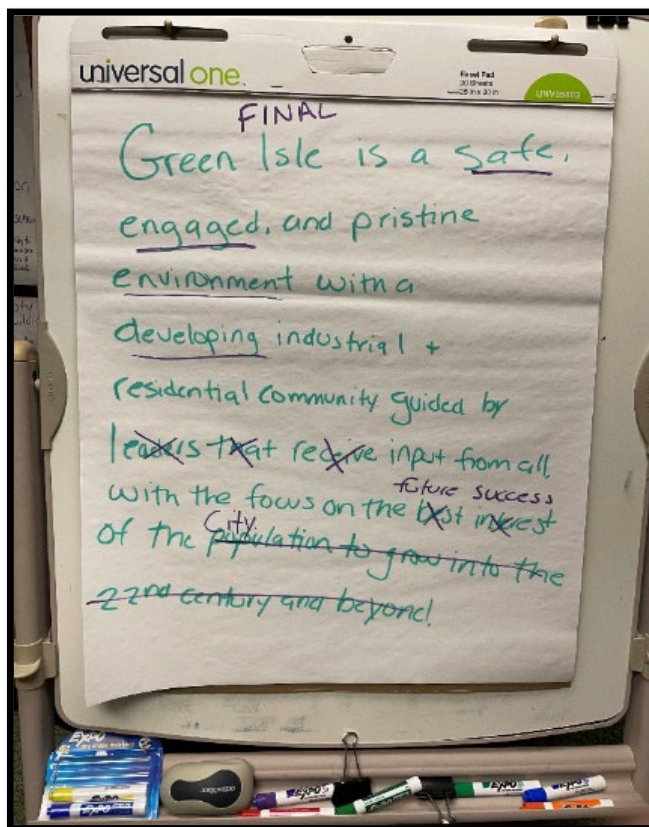 universal one
Easel Pad
30 Sheets
UNV35603
FINAL
Green Isle is a safe,
engaged, and pristine
environment with a
developing industrial +
residential community guided by
leaders that receive input from all,
future success
with the focus on the best interest
City
of the population to grow into the
22nd century and beyond!
EXPO
EXPO
EXPO
EXPO
EXPO